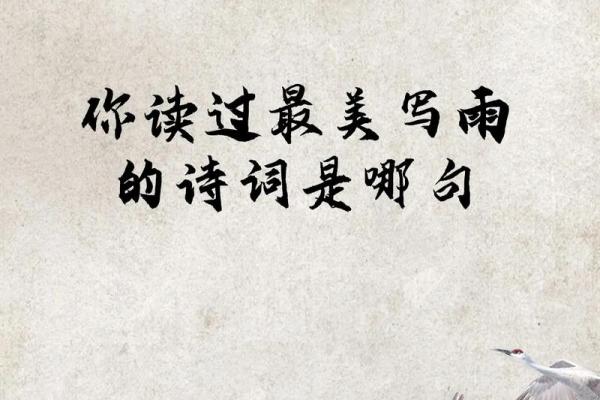 你读过最美写雨
的诗词是哪句